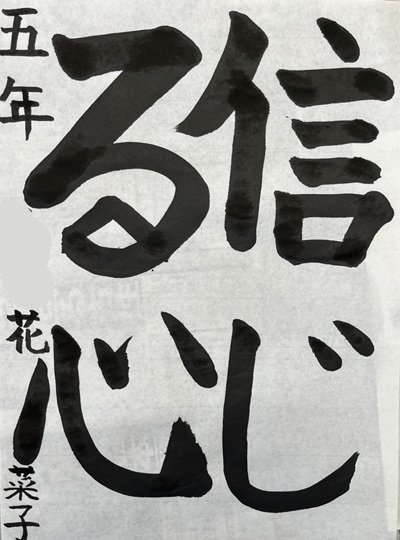 信じ
る心
五年 花菜子